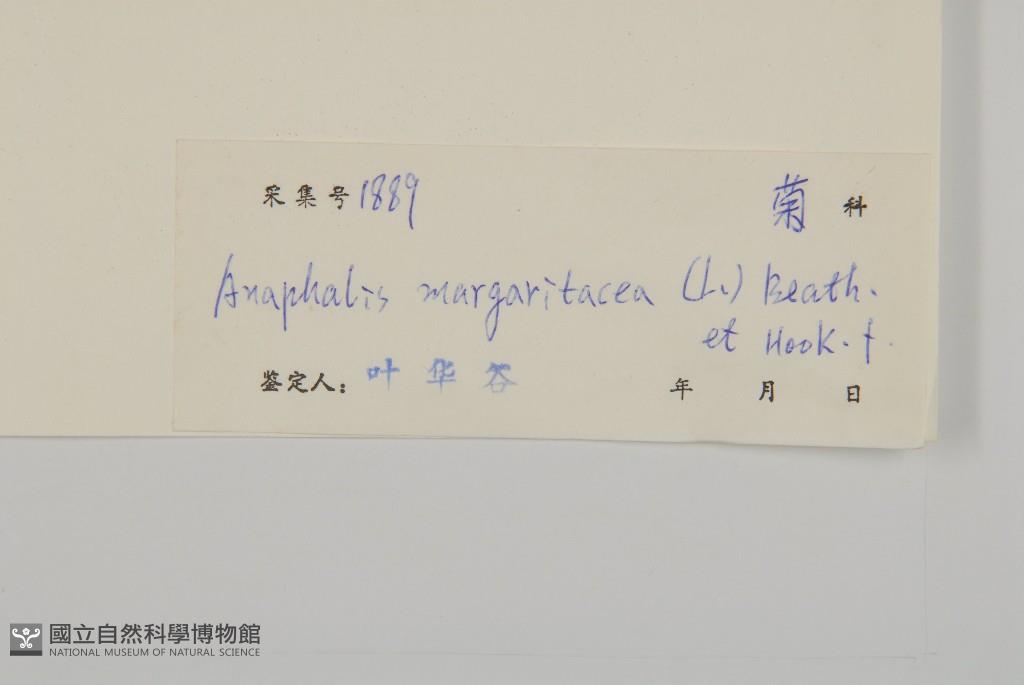 采集号 1889 菊 科
Anaphalis margaritacea (L.) Beath.
et Hook. f.
鉴定人: 叶华谷 年 月 日
國立自然科學博物館
NATIONAL MUSEUM OF NATURAL SCIENCE